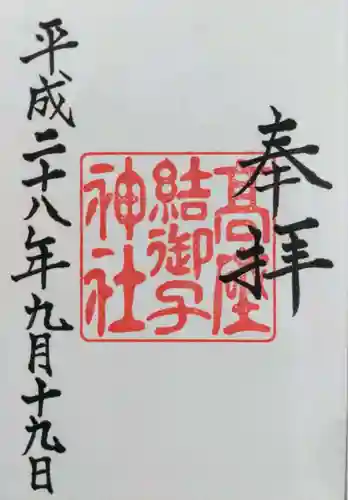 奉拝
髙座
結御子
神社
平成二十八年九月十九日